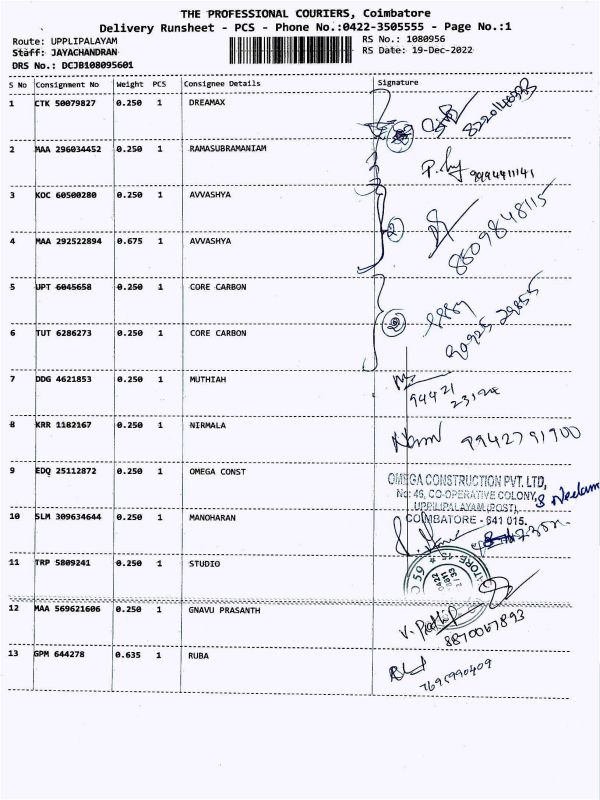 THE PROFESSIONAL COURIERS, Coimbatore
Delivery Runsheet - PCS - Phone No.:0422-3505555 - Page No.:1
Route: UPPLIPALAYAM RS No.: 1080956
Staff: JAYACHANDRAN RS Date: 19-Dec-2022
DRS No.: DCJB108095601
S No Consignment No Weight PCS Consignee Details Signature
1 CTK 50079827 0.250 1 DREAMAX
2 MAA 296034452 0.250 1 RAMASUBRAMANIAM
3 KOC 60500280 0.250 1 AVVASHYA
8609848115
4 MAA 292522894 0.675 1 AVVASHYA
5 UPT 6045658 0.250 1 CORE CARBON
6 TUT 6286273 0.250 1 CORE CARBON
7 DDG 4621853 0.250 1 MUTHIAH
94421
8 KRR 1182167 0.250 1 NIRMALA
9942791900
9 EDQ 25112872 0.250 1 OMEGA CONST
OMEGA CONSTRUCTION PVT. LTD,
No: 46, CO-OPERATIVE COLONY,
UPPILIPALAYAM (POST),
COIMBATORE - 641 015.
10 SLM 309634644 0.250 1 MANOHARAN
11 TRP 5809241 0.250 1 STUDIO
12 MAA 569621606 0.250 1 GNAVU PRASANTH
V. Prathip
8870067893
13 GPM 644278 0.635 1 RUBA
7695990409